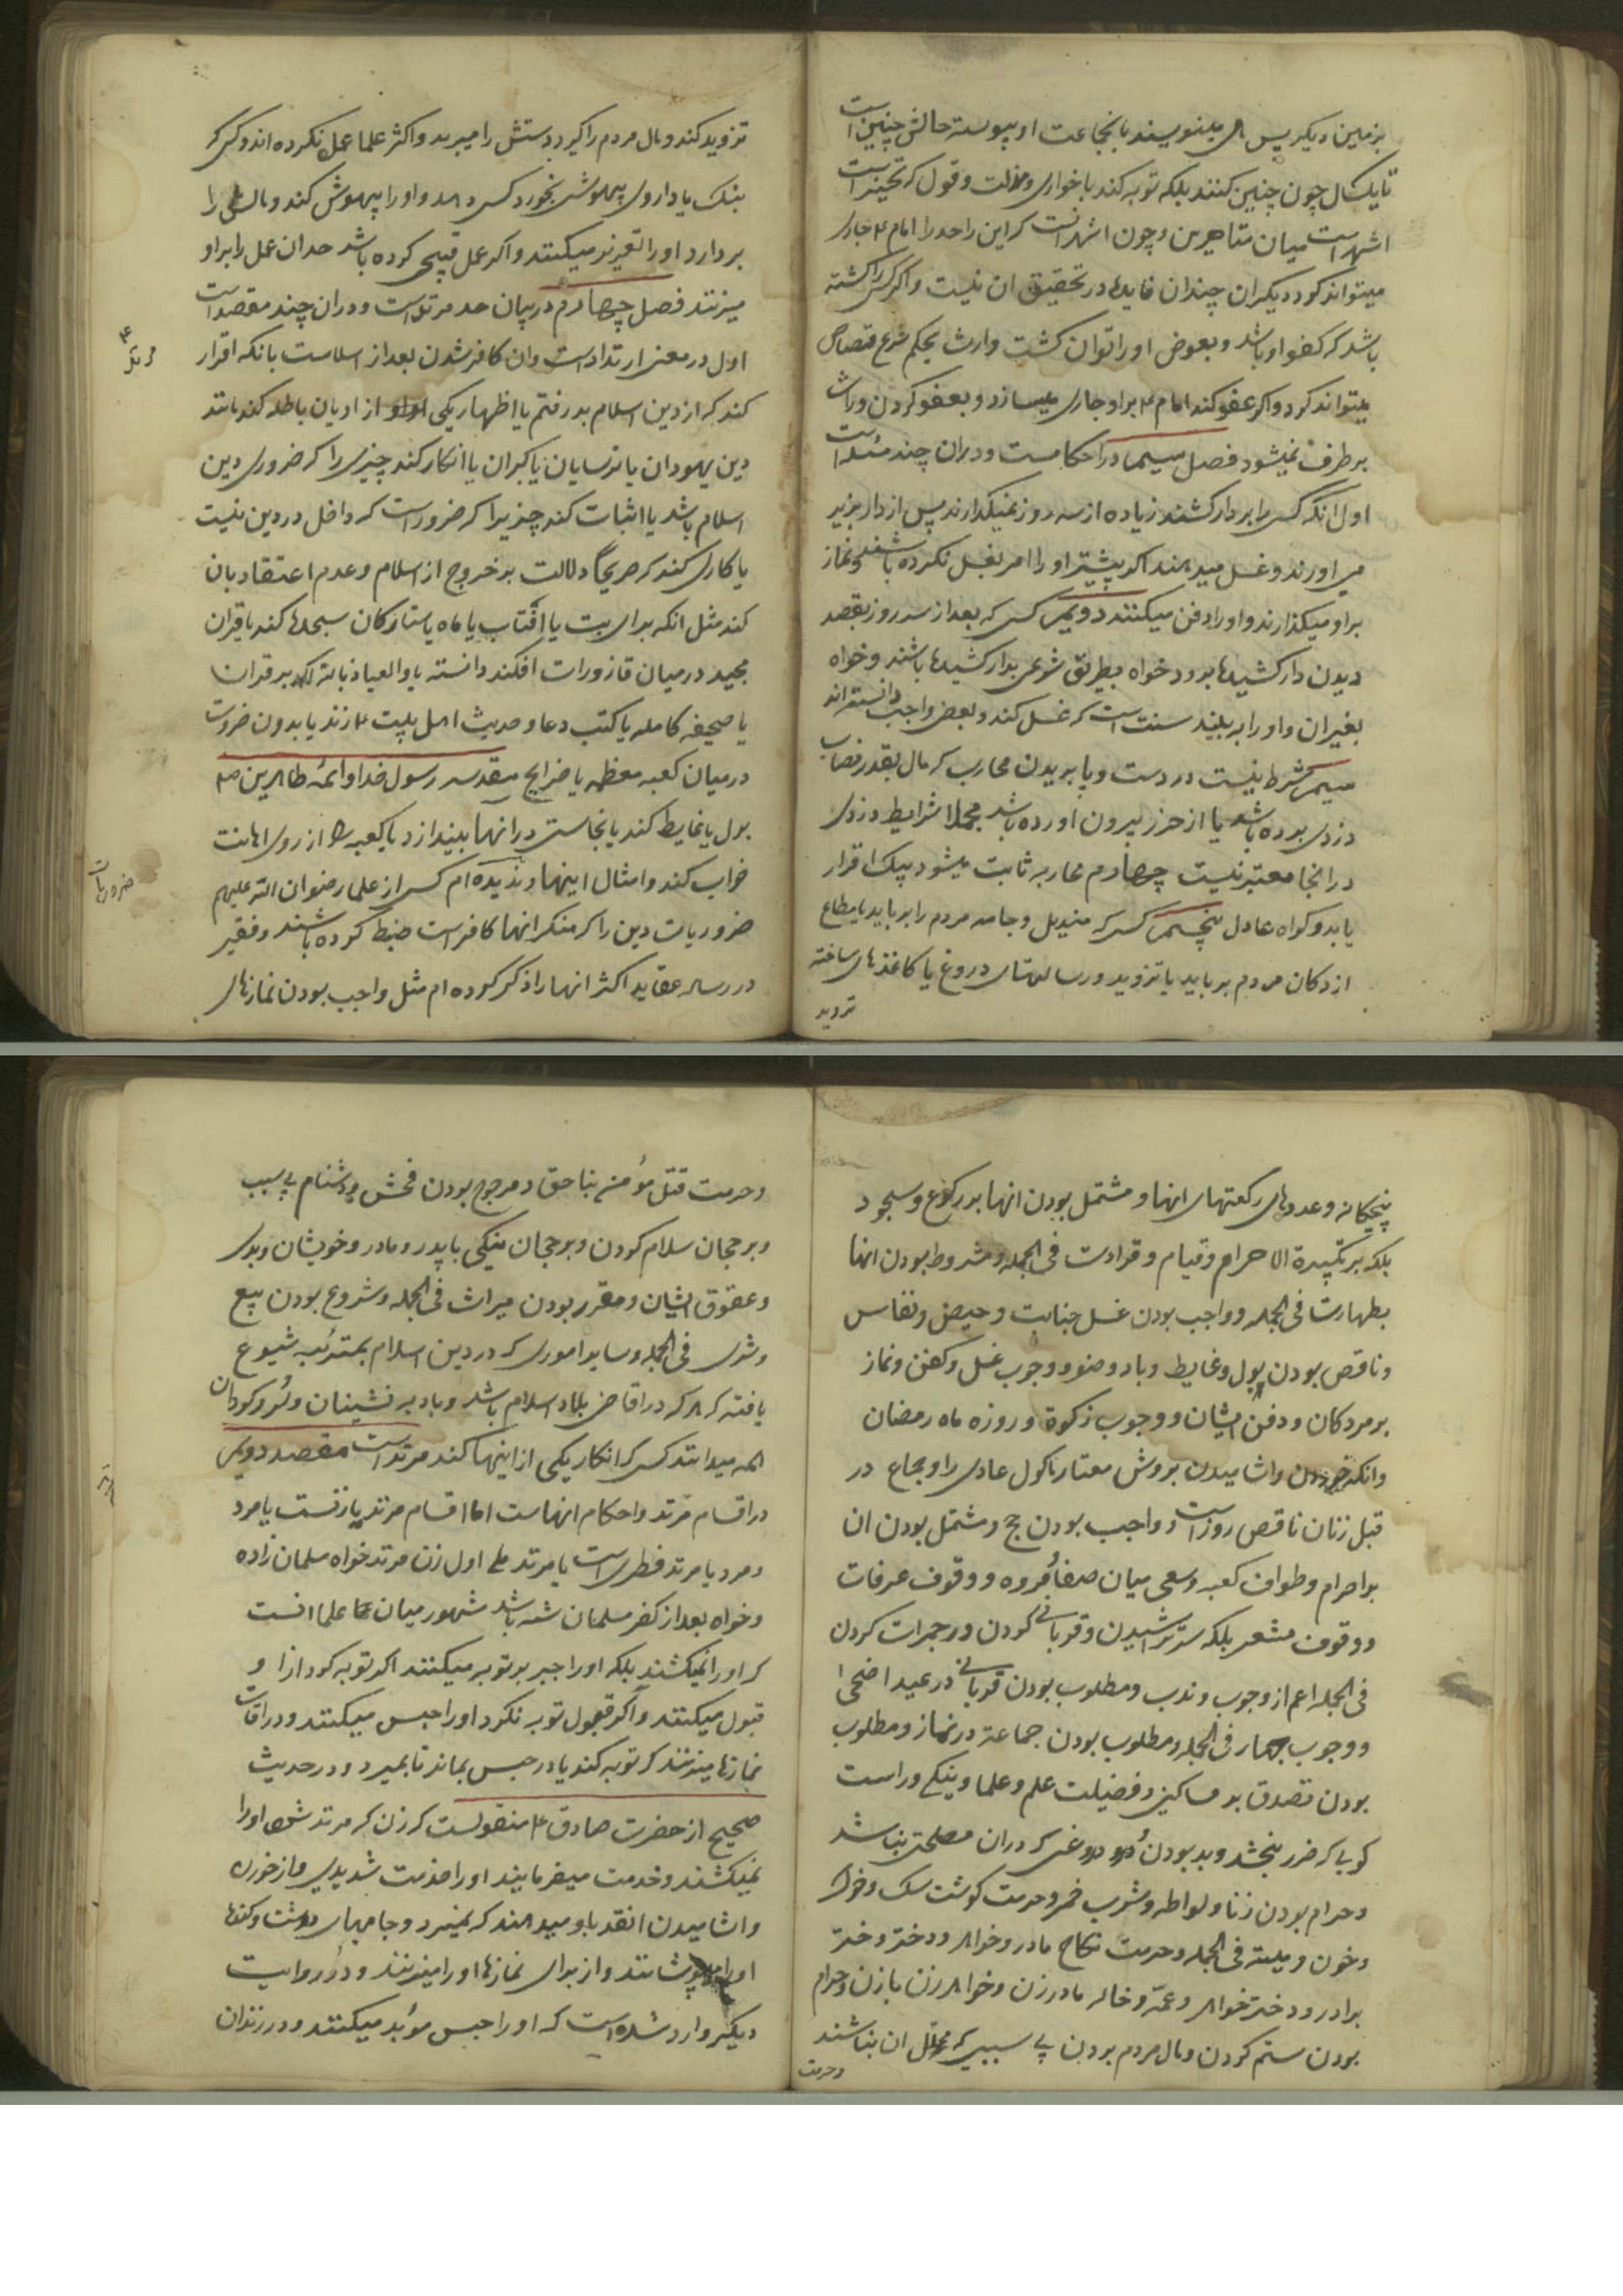 بزمین دیگر پس می نویسند بانجماعت او پیوسته حالش چنین است
تا یک سال چون چنین کنند بلکه توبه کند با خواری و مذلت و قول که تخییر است
اشهر است میان متاخرین و چون اشهر آنست که این را حد را امام ع جاری
میتواند کرد و دیگران چندان فایدها در تحقیق ان نیست و اگر کسی را کشته
باشد که کفو او باشد و بعوض او را توان کشت وارث بحکم شرع قصاص
میتواند کرد و اگر عفو کند امام ع بر او جاری میسازد و بعفو کردن وارث
برطرف نمیشود فصل سیم در احکامست و در ان چند مسئله است
اول انکه کسی را بردار کشند زیاده از سه روز نمیگذارند پس از دار بزیر
می اورند و غسل میدهند اگر پیشتر او را امر بغسل نکرده باشند و نماز
بر او میگذارند و او را دفن میکنند دویم کسی که بعد از سه روز بقصد
دیدن دار کشیدها برود خواه بطریق شرعی بدار کشیدها باشند و خواه
بغیر ان و او را به بیند سنت است که غسل کند و بعضی واجب دانسته اند
سیم شرط نیست در دست و پا بریدن محارب که مال بقدر نصاب
دزدی برده باشد یا از حرز بیرون اورده باشد مجملا شرایط دزدی
در انجا معتبر نیست چهارم محاربه ثابت میشود بیک اقرار
یا بدو کواه عادل پنجم کسی که مندیل و جامه مردم را برباید یا مطاع
از دکان مردم برباید یا تزویر و رسالتهای دروغ یا کاغذهای ساخته
تزوید
تزوید کند و مال مردم را گیرد دستش را میبرند و اکثر علما عمل نکرده اند و کسی که
بنک یا داروی بیهوشی بخورد کسی دهد و او را بیهوش کند و مالی را
بردارد او را تعزیر میکنند و اگر عمل قبیحی کرده باشد حد ان عمل را بر او
میزنند فصل چهارم در بیان حد مرتد است و در ان چند مقصد است
اول در معنی ارتداد است و ان کافر شدن بعد از اسلامست بانکه اقرار
کند که از دین اسلام بدر رفتم یا اظهار یکی از ادیان باطله کند مانند
دین یهودان یا ترسایان یا گبران یا انکار کند چیزی را که ضروری دین
اسلام باشد یا اثبات کند چیزیرا که ضرور است که داخل در دین نیست
یا کاری کند که صریحا دلالت بر خروج از اسلام و عدم اعتقاد بان
کند مثل انکه برای بت یا افتاب یا ماه یا ستارکان سجدها کند یا قران
مجید در میان قازورات افکند دانسته یا والعیاذ بالله لکد بر قران
یا صحیفه کامله یا کتب دعا و حدیث اهل بیت ع زند یا بدون ضرورت
در میان کعبه معظمه یا ضرایح مقدسه رسول خدا و ائمه طاهرین صع
بول یا غایط کند یا نجاستی در انها بیندازد یا کعبه را از روی اهانت
خراب کند و امثال اینها و ندیده ام کسی از علما رضوان الله علیهم
ضروریات دین را که منکر انها کافر است ضبط کرده باشند و فقیر
در رساله عقاید اکثر انها را ذکر کرده ام مثل واجب بودن نمازهای
ضروریات
پنجگانه و عددهای رکعتهای انها و مشتمل بودن انها بر رکوع و سجود
بلکه بر تکبیرة الاحرام و قیام و قراءت فی الجمله و مشروط بودن انها
بطهارت فی الجمله و واجب بودن غسل جنابت و حیض و نفاس
و ناقص بودن بول و غایط و باد وضو و وجوب غسل و کفن و نماز
بر مردکان و دفن ایشان و وجوب زکوة و روزه ماه رمضان
و انکه خوردن و اشامیدن بروش معتاد ماکول عادی را و جماع در
قبل زنان ناقص روزه است و واجب بودن حج و مشتمل بودن ان
بر احرام و طواف کعبه و سعی میان صفا و مروه و وقوف عرفات
و وقوف مشعر بلکه سر تراشیدن و قربانی کردن و رجمرات کردن
فی الجمله اعم از وجوب و ندب و مطلوب بودن قربانی در عید اضحی
و وجوب جهاد فی الجمله و مطلوب بودن جماعة در نماز و مطلوب
بودن تصدق بر مساکین و فضیلت علم و علما و نیکی و راست
کویی که ضرر نبخشد و بد بودن دروغی که در ان مصلحتی نباشد
و حرام بودن زنا و لواطه و شرب خمر و حرمت کوشت سک و خوک
و خون و میته فی الجمله و حرمت نکاح مادر و خواهر و دختر و دختر
برادر و دختر خواهر و عمه و خاله و مادر زن و خواهر زن با زن و حرام
بودن ستم کردن و مال مردم بردن بی سببی که محلل ان نباشند
و حرمت
و حرمت قتل مؤمن بناحق و مرجوح بودن فحش و دشنام بی سبب
و برجحان سلام کردن و برجحان نیکی با پدر و مادر و خویشان و بدی
و عقوق ایشان و مقرر بودن میراث فی الجمله و مشروع بودن بیع
و شری فی الجمله و سایر اموری که در دین اسلام بمرتبه شیوع
یافته که هر که در اقاصی بلاد اسلام باشد و بادیه نشینان و لر و کردان
همه میدانند کسی که انکار یکی از اینها کند مرتد است مقصد دویم
در اقسام مرتد و احکام انهاست اما اقسام مرتد یا زنست یا مرد
و مرد یا مرتد فطری است یا مرتد ملی اول زن مرتد خواه مسلمان زاده
و خواه بعد از کفر مسلمان شده باشد مشهور میان علما انست
که او را نمیکشند بلکه او را جبر بر توبه میکنند اگر توبه کرد از او
قبول میکنند و اگر قبول توبه نکرد او را حبس میکنند و در اوقات
نمازها میزنند که توبه کند یا در حبس بماند تا بمیرد و در حدیث
صحیح از حضرت صادق ع منقولست که زن که مرتد شود او را
نمیکشند و خدمت میفرمایند او را خدمت شدیدی و از خوردن
و اشامیدن انقدر باو میدهند که نمیرد و جامهای درشت و کنده
او را میپوشانند و از برای نمازها او را میزنند و در روایت
دیگر وارد شده است که او را حبس مؤبد میکنند و در زندان